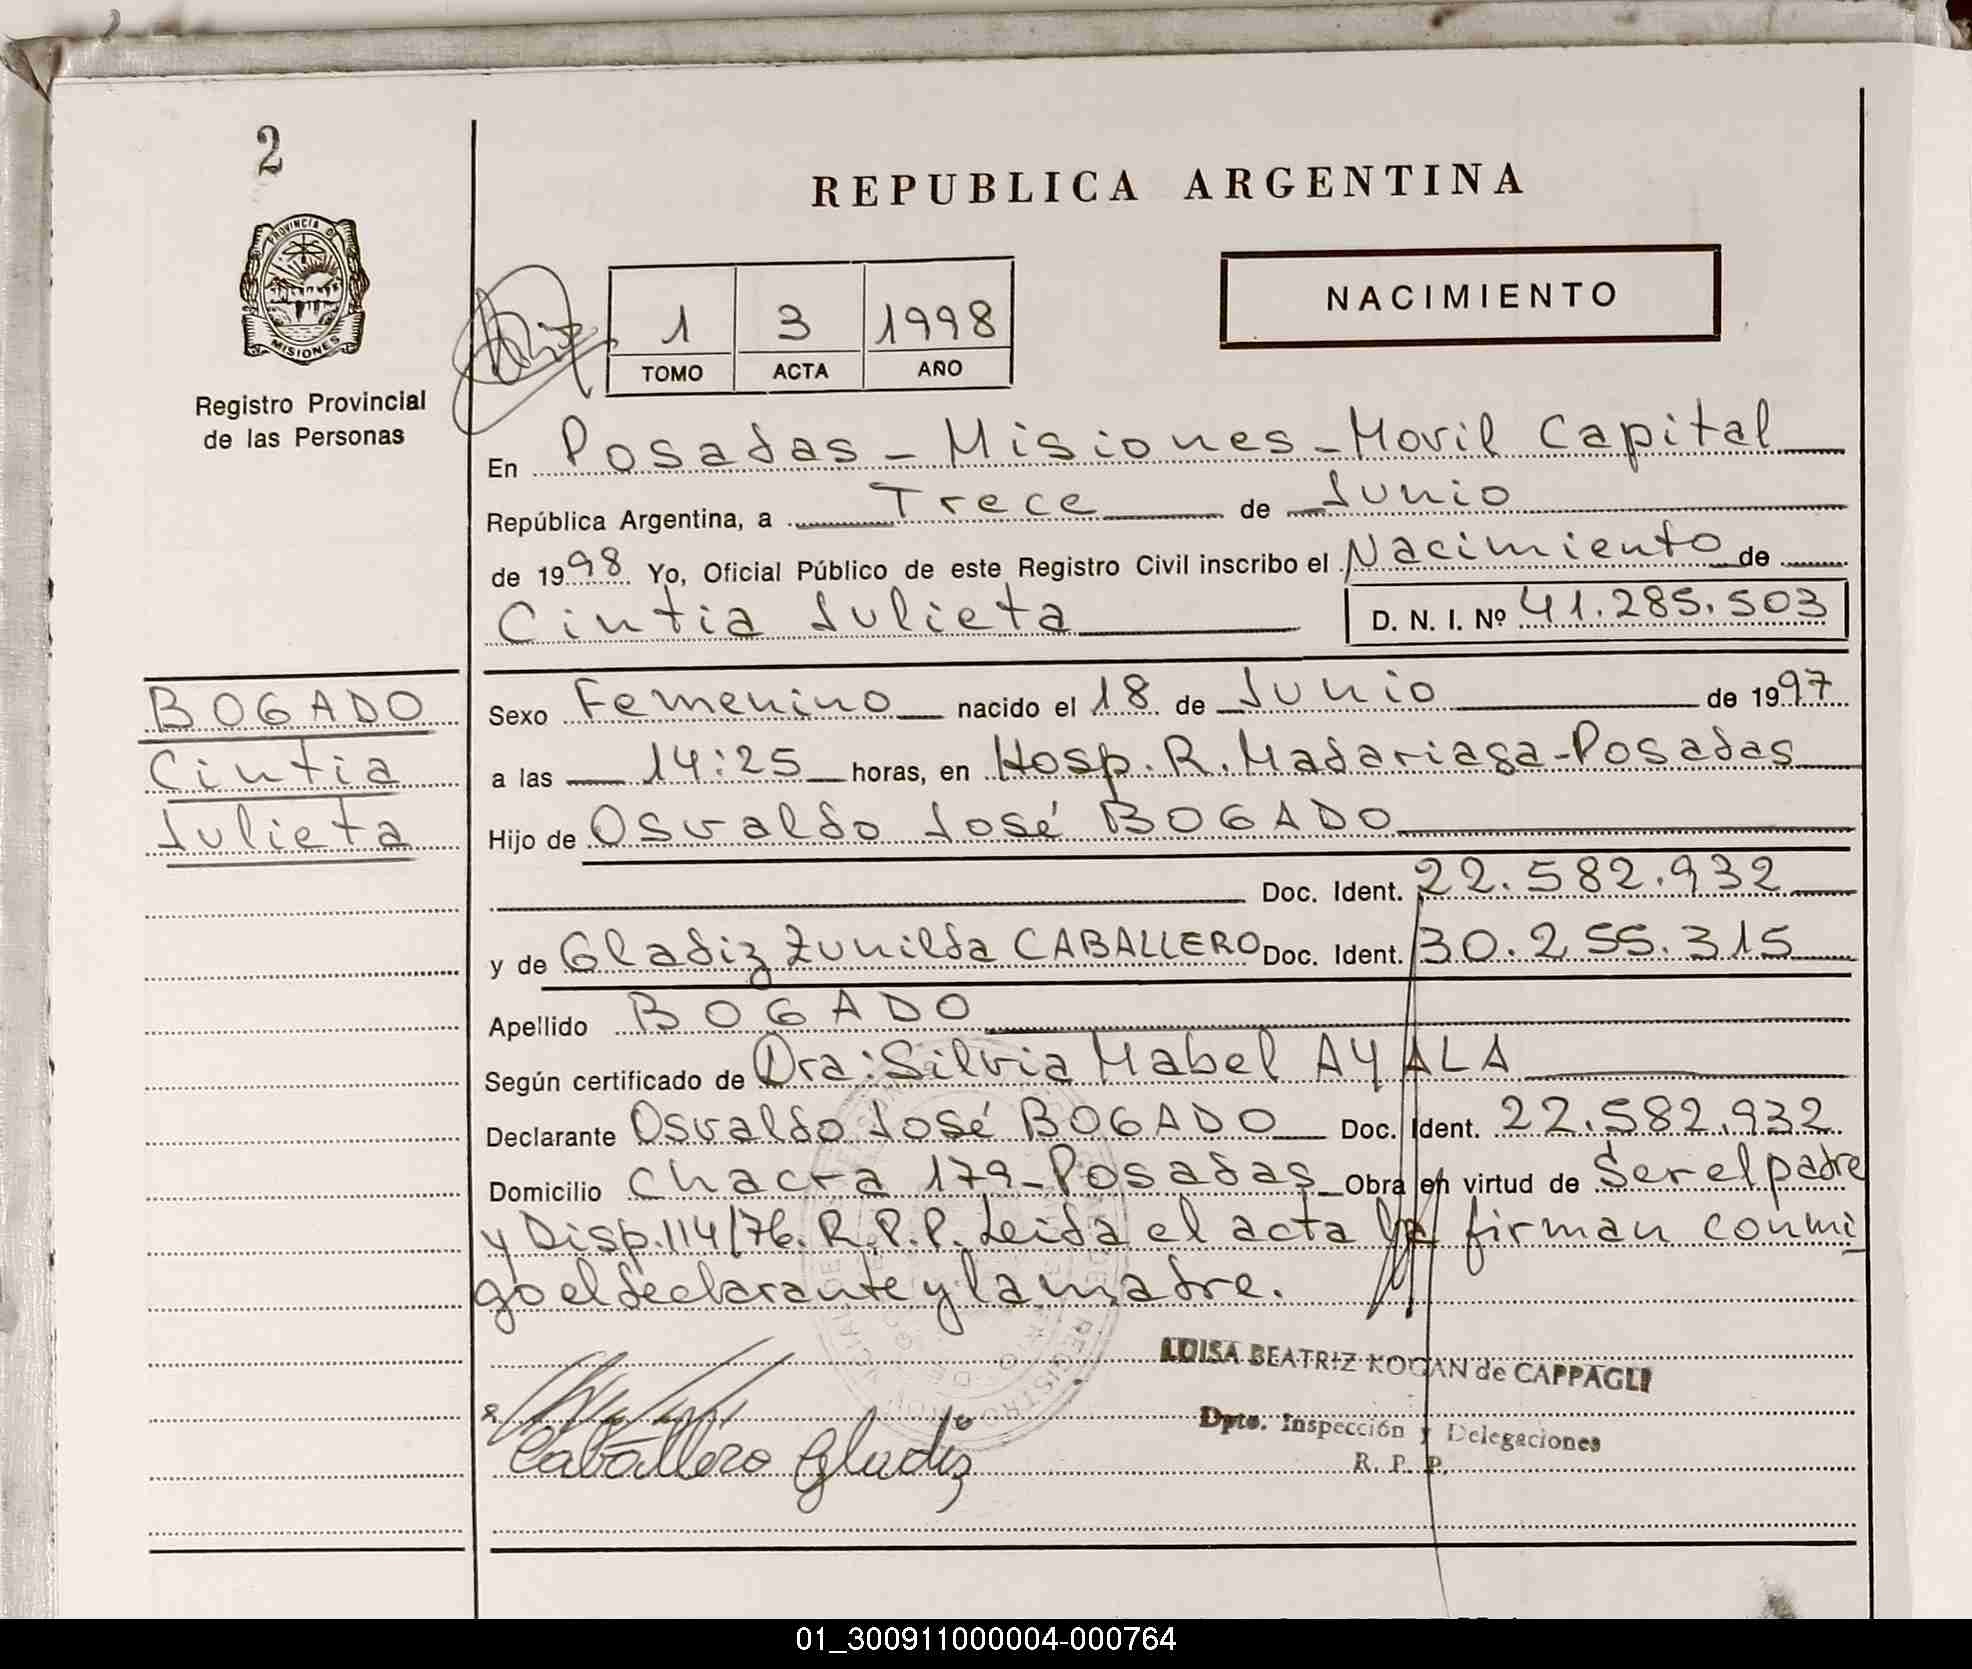 2
PROVINCIA DE
MISIONES
Registro Provincial
de las Personas
REPUBLICA ARGENTINA
1 3 1998
TOMO ACTA AÑO
NACIMIENTO
En Posadas - Misiones - Movil Capital
República Argentina, a Trece de Junio
de 1998 Yo, Oficial Público de este Registro Civil inscribo el Nacimiento de
Cintia Julieta D. N. I. Nº 41.285.503
BOGADO
Cintia
Julieta
Sexo Femenino nacido el 18 de Junio de 1997
a las 14:25 horas, en Hosp. R. Madariaga - Posadas
Hijo de Osvaldo José BOGADO
Doc. Ident. 22.582.932
y de Gladiz Zunilda CABALLERO Doc. Ident. 30.255.315
Apellido BOGADO
Según certificado de Dra: Silvia Mabel AYALA
Declarante Osvaldo José BOGADO Doc. Ident. 22.582.932
Domicilio Chacra 179 - Posadas Obra en virtud de Ser el padre
y Disp. 114/76. R.P.P. Leida el acta la firman conmi
go el declarante y la madre.
LUISA BEATRIZ KOGAN de CAPPAGLI
Dpto. Inspección y Delegaciones
R. P. P.
Caballero Gladiz
01_300911000004-000764